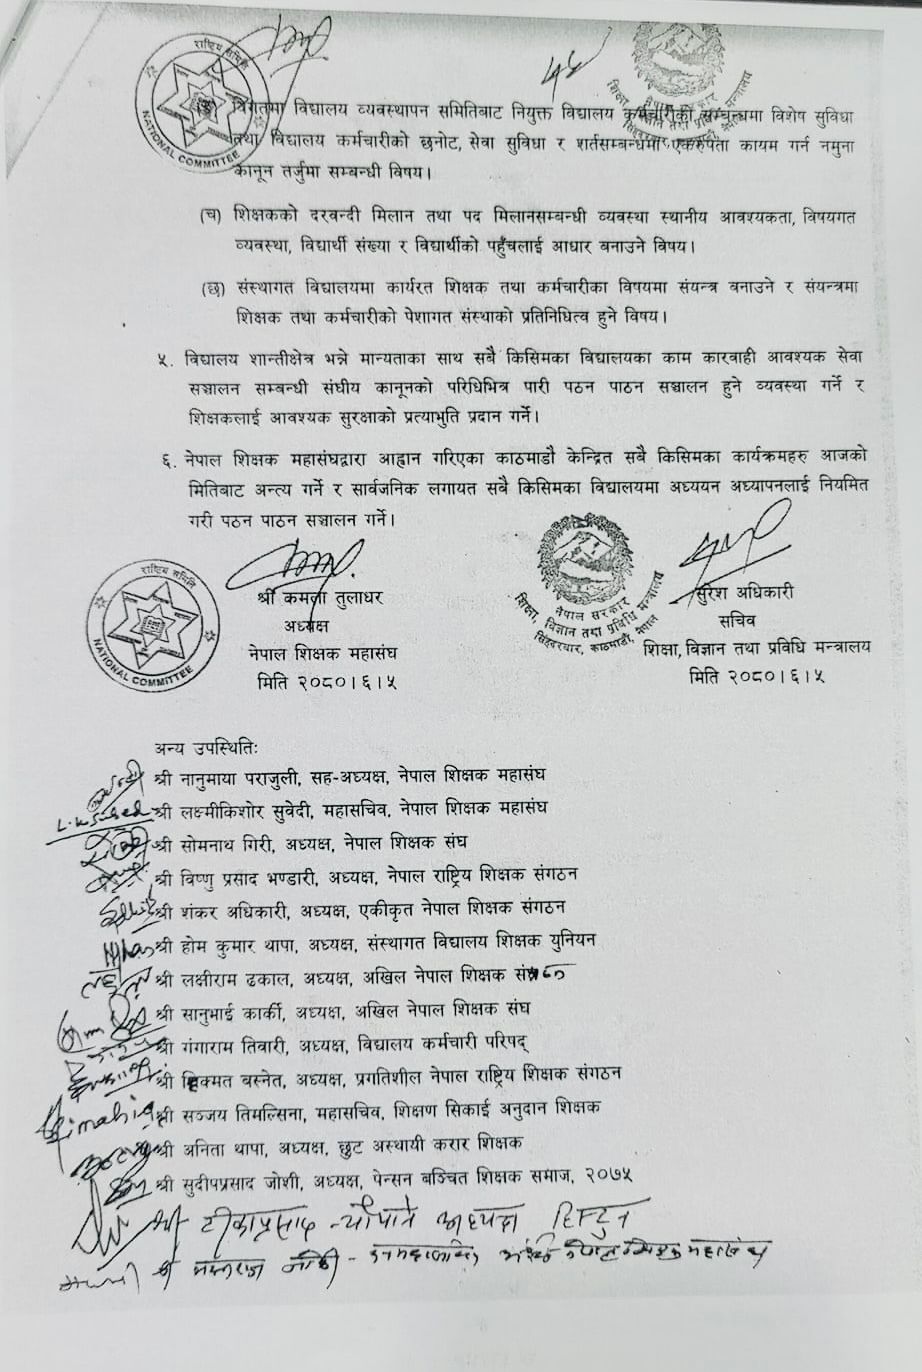 राष्ट्रिय समिति
NATIONAL COMMITTEE
विगतमा विद्यालय व्यवस्थापन समितिबाट नियुक्त विद्यालय कर्मचारीको सम्बन्धमा विशेष सुविधा
तथा विद्यालय कर्मचारीको छनोट, सेवा सुविधा र शर्तसम्बन्धमा एकरुपता कायम गर्न नमुना
कानून तर्जुमा सम्बन्धी विषय।
(च) शिक्षकको दरवन्दी मिलान तथा पद मिलानसम्बन्धी व्यवस्था स्थानीय आवश्यकता, विषयगत
व्यवस्था, विद्यार्थी संख्या र विद्यार्थीको पहुँचलाई आधार बनाउने विषय।
(छ) संस्थागत विद्यालयमा कार्यरत शिक्षक तथा कर्मचारीका विषयमा संयन्त्र बनाउने र संयन्त्रमा
शिक्षक तथा कर्मचारीको पेशागत संस्थाको प्रतिनिधित्व हुने विषय।
५. विद्यालय शान्तीक्षेत्र भन्ने मान्यताका साथ सबै किसिमका विद्यालयका काम कारवाही आवश्यक सेवा
सञ्चालन सम्बन्धी संघीय कानूनको परिधिभित्र पारी पठन पाठन सञ्चालन हुने व्यवस्था गर्ने र
शिक्षकलाई आवश्यक सुरक्षाको प्रत्याभुति प्रदान गर्ने।
६. नेपाल शिक्षक महासंघद्वारा आह्वान गरिएका काठमाडौं केन्द्रित सबै किसिमका कार्यक्रमहरु आजको
मितिबाट अन्त्य गर्ने र सार्वजनिक लगायत सबै किसिमका विद्यालयमा अध्ययन अध्यापनलाई नियमित
गरी पठन पाठन सञ्चालन गर्ने।
राष्ट्रिय समिति
NATIONAL COMMITTEE
श्री कमला तुलाधर
अध्यक्ष
नेपाल शिक्षक महासंघ
मिति २०८०।६।५
नेपाल सरकार
शिक्षा, विज्ञान तथा प्रविधि मन्त्रालय
सिंहदरबार, काठमाडौं, नेपाल
सुरेश अधिकारी
सचिव
शिक्षा, विज्ञान तथा प्रविधि मन्त्रालय
मिति २०८०।६।५
अन्य उपस्थितिः
श्री नानुमाया पराजुली, सह-अध्यक्ष, नेपाल शिक्षक महासंघ
श्री लक्ष्मीकिशोर सुवेदी, महासचिव, नेपाल शिक्षक महासंघ
श्री सोमनाथ गिरी, अध्यक्ष, नेपाल शिक्षक संघ
श्री विष्णु प्रसाद भण्डारी, अध्यक्ष, नेपाल राष्ट्रिय शिक्षक संगठन
श्री शंकर अधिकारी, अध्यक्ष, एकीकृत नेपाल शिक्षक संगठन
श्री होम कुमार थापा, अध्यक्ष, संस्थागत विद्यालय शिक्षक युनियन
श्री लक्षीराम ढकाल, अध्यक्ष, अखिल नेपाल शिक्षक
श्री सानुभाई कार्की, अध्यक्ष, अखिल नेपाल शिक्षक संघ
श्री गंगाराम तिवारी, अध्यक्ष, विद्यालय कर्मचारी परिषद्
श्री हिक्मत बस्नेत, अध्यक्ष, प्रगतिशील नेपाल राष्ट्रिय शिक्षक संगठन
श्री सञ्जय तिमल्सिना, महासचिव, शिक्षण सिकाई अनुदान शिक्षक
श्री अनिता थापा, अध्यक्ष, छुट अस्थायी करार शिक्षक
श्री सुदीपप्रसाद जोशी, अध्यक्ष, पेन्सन बञ्चित शिक्षक समाज, २०७५
श्री टीकाप्रसाद न्यौपाने अध्यक्ष
श्री